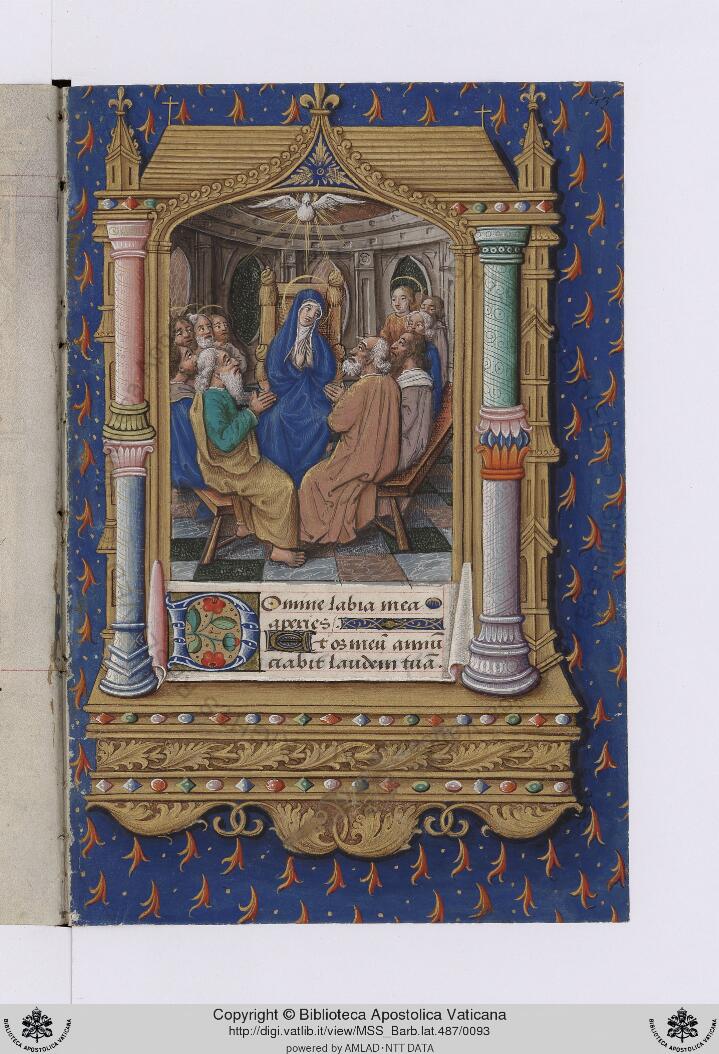 Domine labia mea
aperies.
Et os meū annū
ciabit laudem tuā.
Copyright © Biblioteca Apostolica Vaticana
http://digi.vatlib.it/view/MSS_Barb.lat.487/0093
powered by AMLAD·NTT DATA
BIBLIOTECA APOSTOLICA VATICANA
BIBLIOTECA APOSTOLICA VATICANA